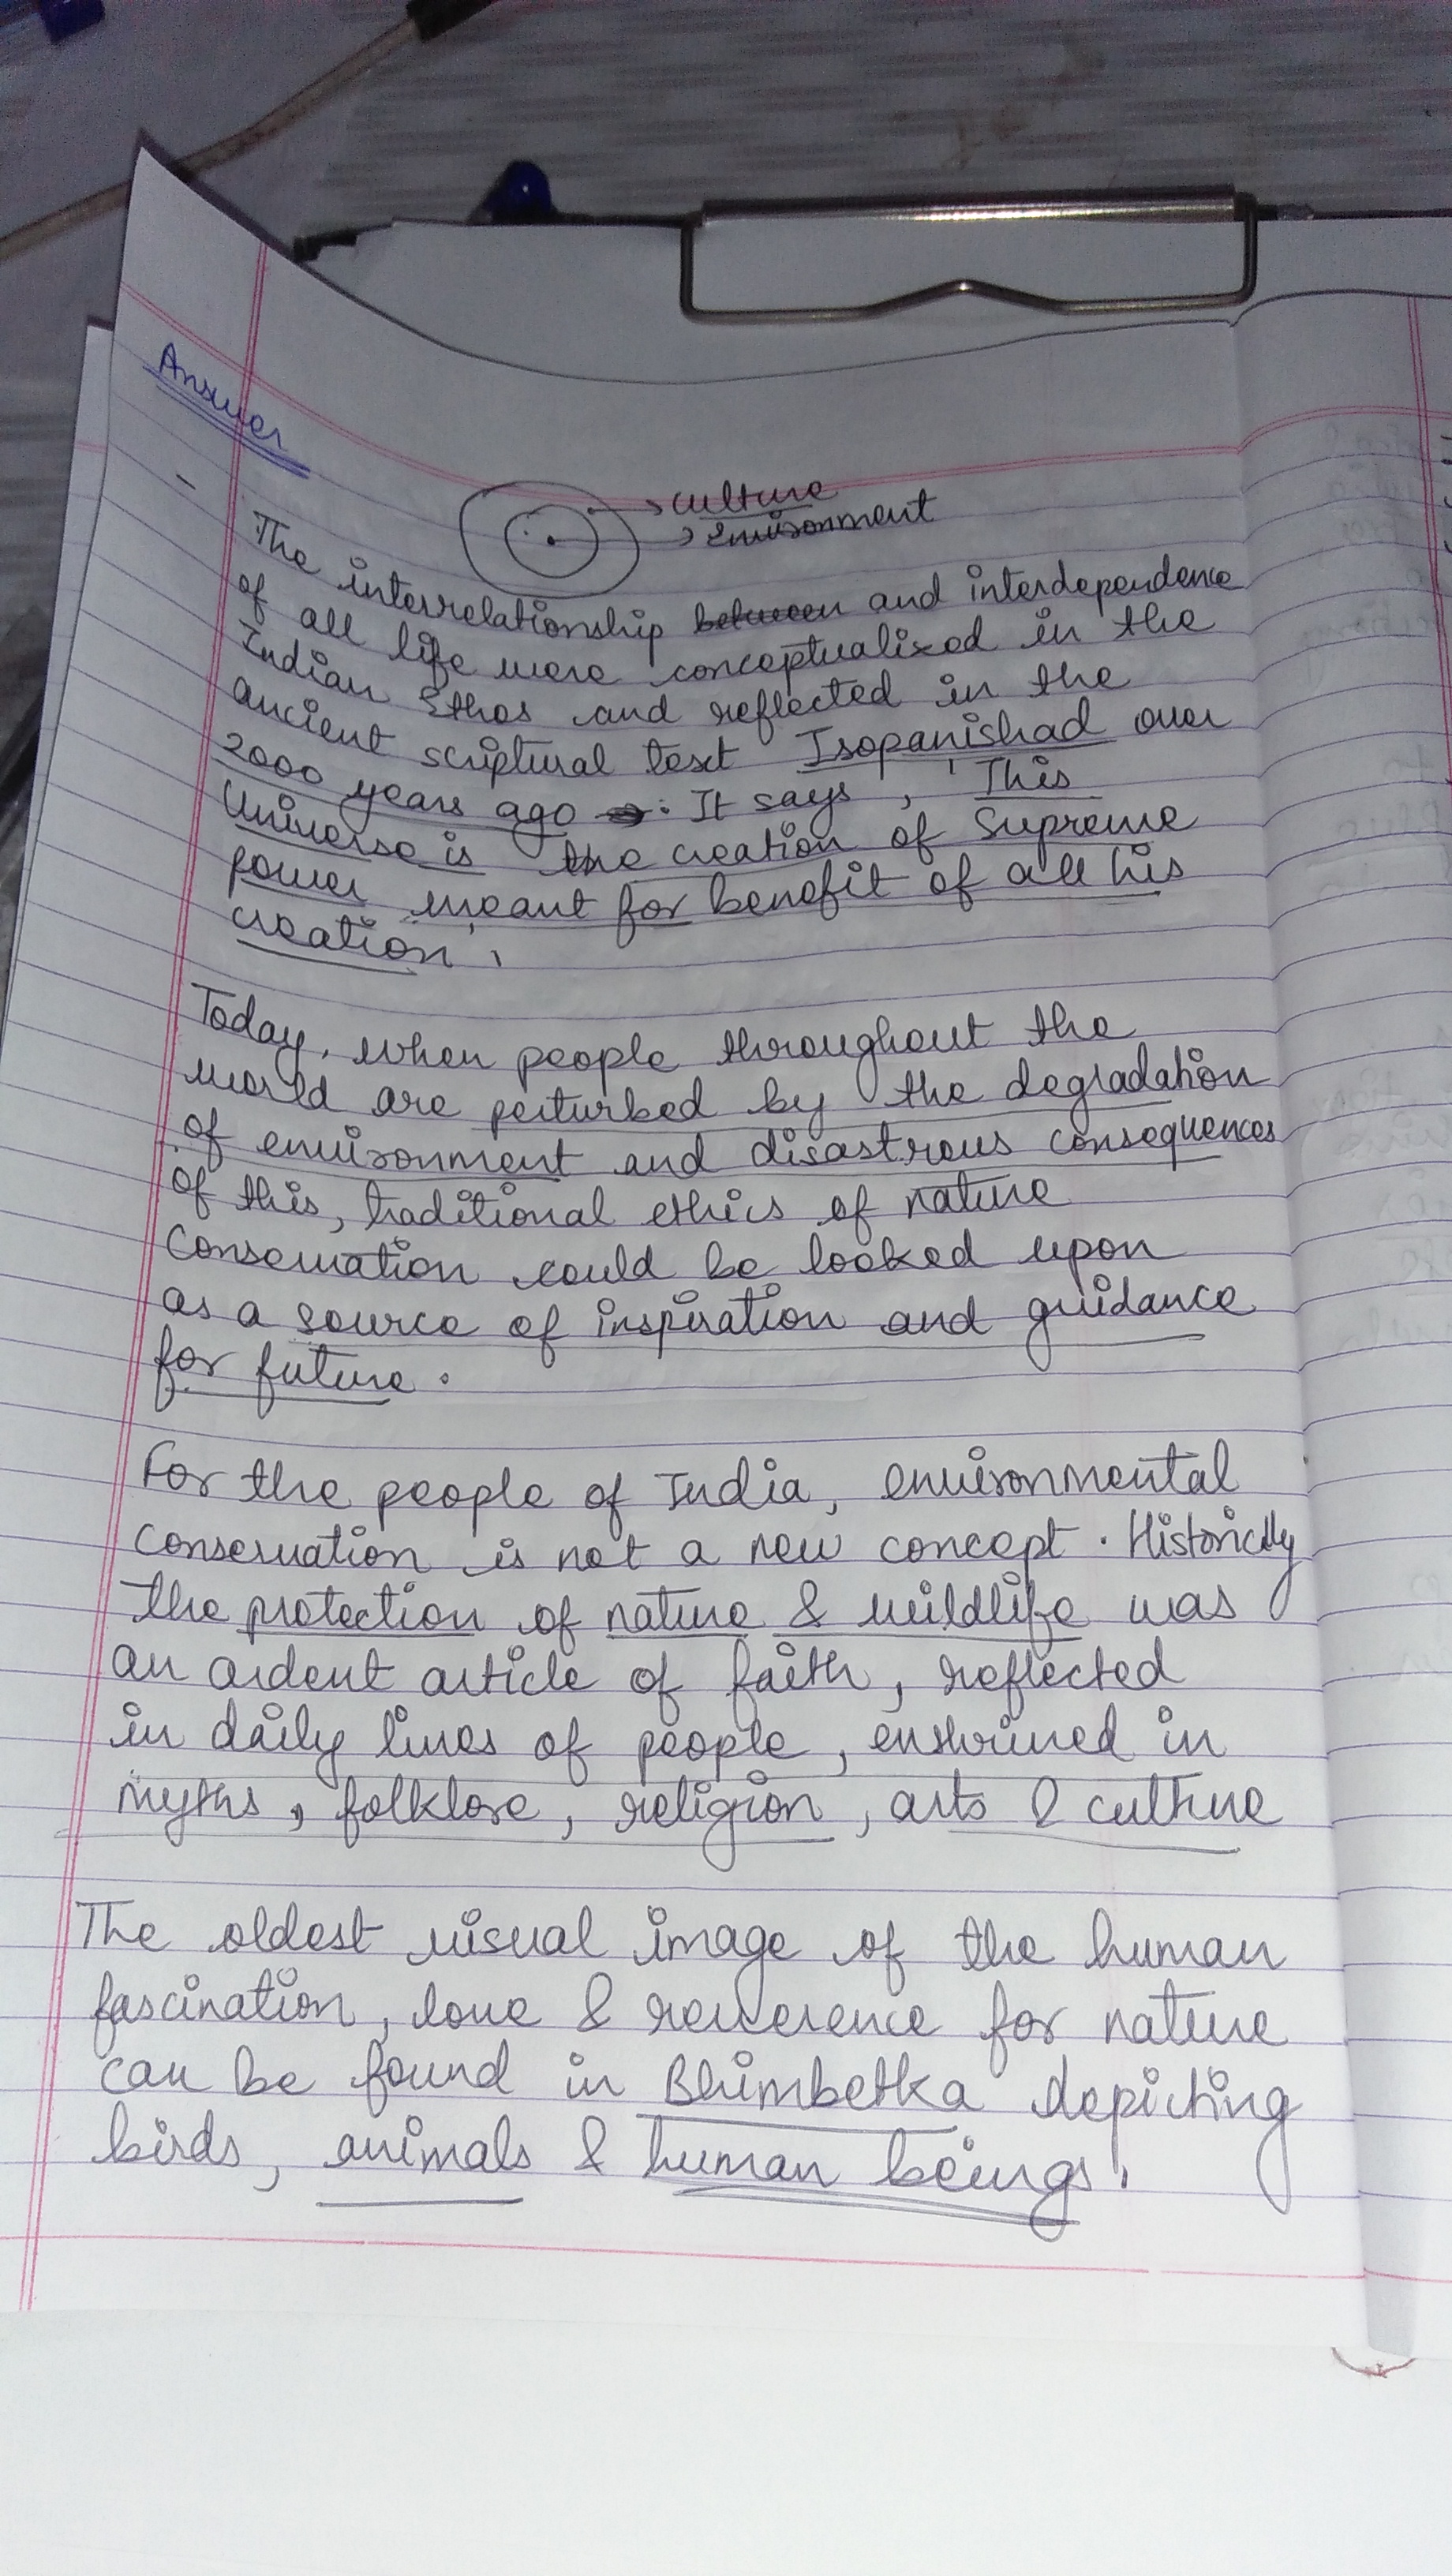 Answer
culture
Environment
The interrelationship between and interdependence
of all life were conceptualized in the
Indian Ethos and reflected in the
ancient scriptural text Isopanishad over
2000 years ago. It says, 'This
Universe is the creation of Supreme
power meant for benefit of all his
creation'.
Today, when people throughout the
world are perturbed by the degradation
of environment and disastrous consequences
of this, traditional ethics of nature
Conservation could be looked upon
as a source of inspiration and guidance
for future.
For the people of India, environmental
conservation is not a new concept. Historiclly
the protection of nature & wildlife was
an ardent article of faith, reflected
in daily lives of people, enshrined in
myths, folklore, religion, arts & culture
The oldest visual image of the human
fascination, love & reverence for nature
can be found in Bhimbetka depicting
birds, animals & human beings.